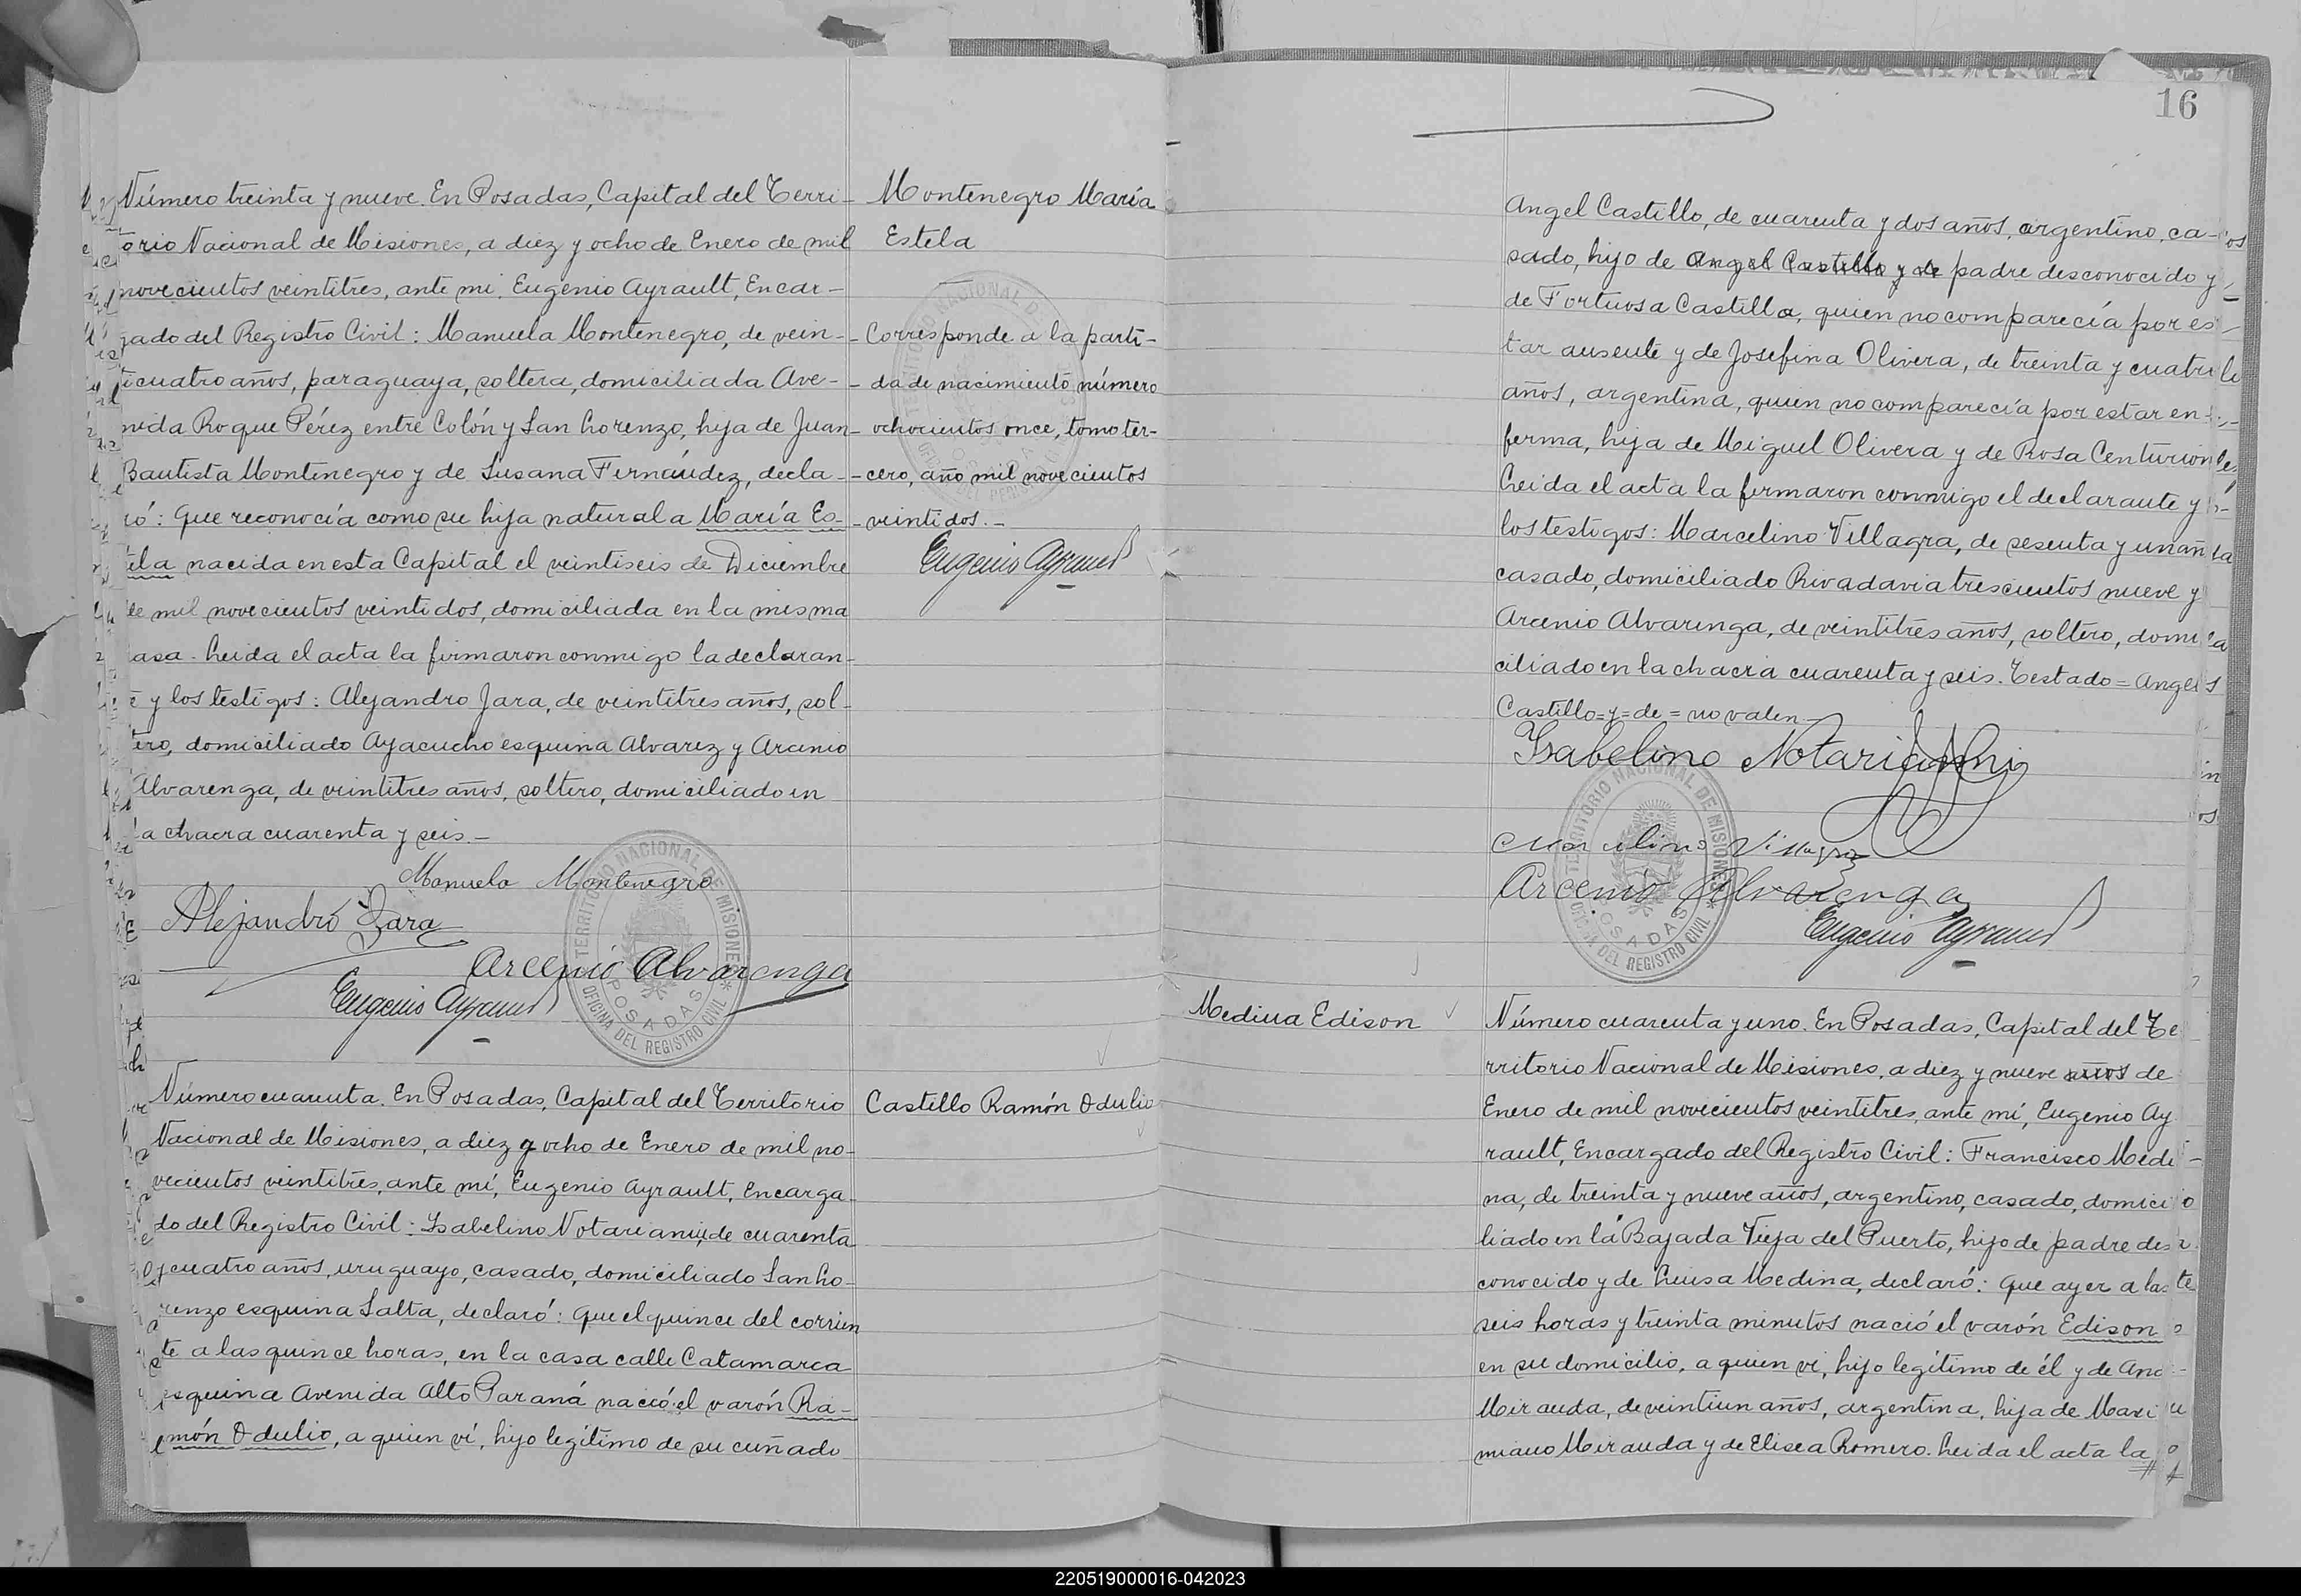 Número treinta y nueve. En Posadas, Capital del Terri-
torio Nacional de Misiones, a diez y ocho de Enero de mil
novecientos veintitres, ante mi, Eugenio Ayrault, Encar-
gado del Registro Civil: Manuela Montenegro, de vein-
ticuatro años, paraguaya, soltera, domiciliada Ave-
nida Roque Pérez entre Colón y San Lorenzo, hija de Juan
Bautista Montenegro y de Susana Fernández, decla-
ró: Que reconocía como su hija natural a María Es-
tela nacida en esta Capital el veintiseis de Diciembre
de mil novecientos veintidos, domiciliada en la misma
casa. Leida el acta la firmaron conmigo la declaran-
te y los testigos: Alejandro Jara, de veintitres años, sol-
tero, domiciliado Ayacucho esquina Alvarez y Arcenio
Alvarenga, de veintitres años, soltero, domiciliado en
la chacra cuarenta y seis.-
Manuela Montenegro
Alejandro Jara
Arcenio Alvarenga
Eugenio Ayrault
TERRITORIO NACIONAL DE MISIONES
POSADAS
OFICINA DEL REGISTRO CIVIL
Montenegro María
Estela
Corresponde a la parti-
da de nacimiento número
ochocientos once, tomo ter-
cero, año mil novecientos
veintidos.-
Eugenio Ayrault
Número cuarenta. En Posadas, Capital del Territorio
Nacional de Misiones, a diez y ocho de Enero de mil no-
vecientos veintitres, ante mí, Eugenio Ayrault, Encarga-
do del Registro Civil: Isabelino Notariani, de cuarenta
y cuatro años, uruguayo, casado, domiciliado San Lo-
renzo esquina Salta, declaró: Que el quince del corrien
te a las quince horas, en la casa calle Catamarca
esquina Avenida Alto Paraná nació el varón Ra-
món Odulio, a quien ví, hijo legítimo de su cuñado
Castillo Ramón Odulio
16
Angel Castillo, de cuarenta y dos años, argentino, ca-
sado, hijo de Angel Castillo y de padre desconocido y
de Fortuosa Castillo, quien no comparecía por es-
tar ausente y de Josefina Olivera, de treinta y cuatro
años, argentina, quien no comparecía por estar en-
ferma, hija de Miguel Olivera y de Rosa Centurion
Leida el acta la firmaron conmigo el declarante y
los testigos: Marcelino Villagra, de sesenta y un años
casado, domiciliado Rivadavia trescientos nueve y
Arcenio Alvarenga, de veintitres años, soltero, domi
ciliado en la chacra cuarenta y seis. Testado = Angel
Castillo = y = de = no valen.-
Isabelino Notariani
Marcelino Villagra
Arcenio Alvarenga
Eugenio Ayrault
TERRITORIO NACIONAL DE MISIONES
POSADAS
OFICINA DEL REGISTRO CIVIL
Medina Edison
Número cuarenta y uno. En Posadas, Capital del Te
rritorio Nacional de Misiones, a diez y nueve años de
Enero de mil novecientos veintitres, ante mí, Eugenio Ay
rault, Encargado del Registro Civil: Francisco Medi
na, de treinta y nueve años, argentino, casado, domici
liado en la Bajada Vieja del Puerto, hijo de padre des
conocido y de Luisa Medina, declaró: Que ayer a las
seis horas y treinta minutos nació el varón Edison
en su domicilio, a quien ví, hijo legítimo de él y de Ana
Miranda, de veintiun años, argentina, hija de Maxi
miano Miranda y de Elisea Romero. Leida el acta la
220519000016-042023